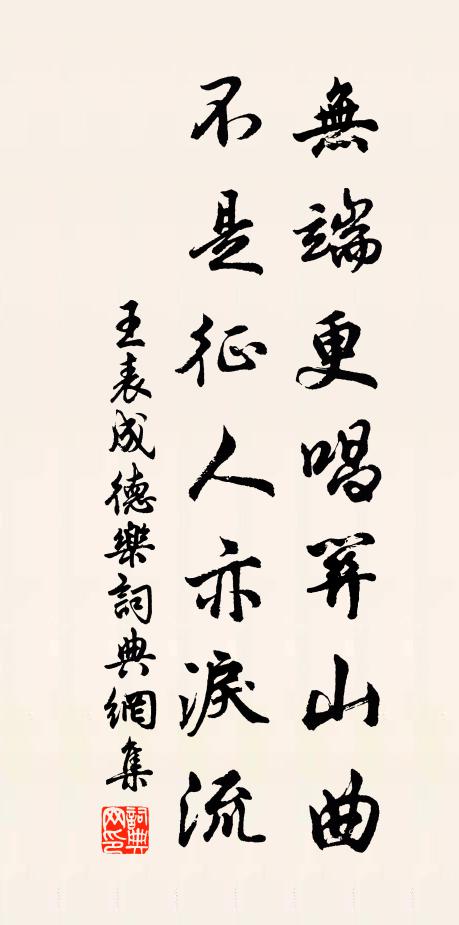 無端更唱關山曲
不是征人亦淚流
王表成德樂詞典網集
詞典網印